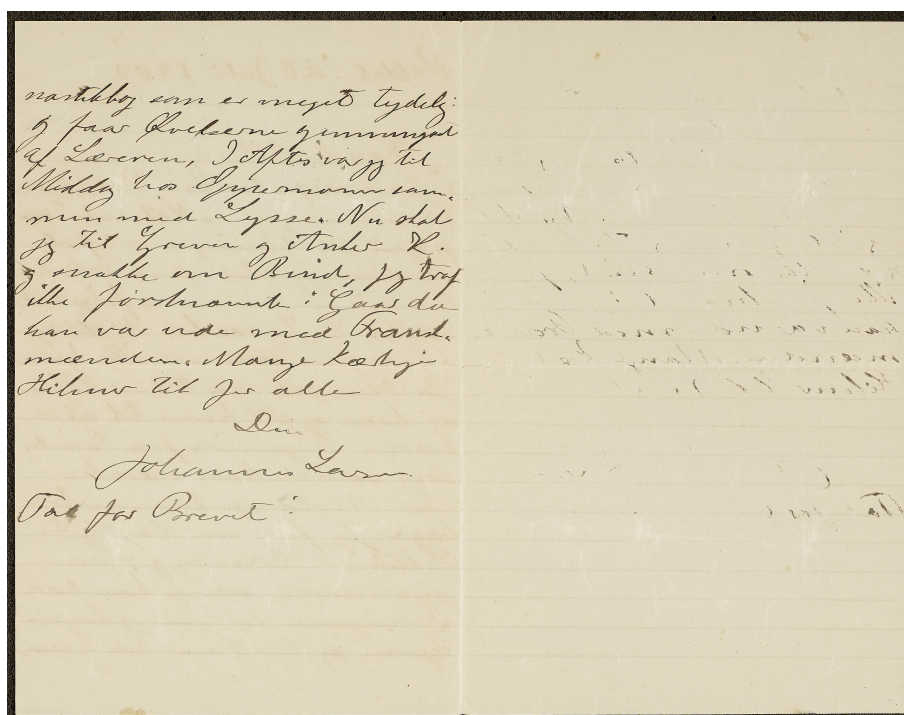 nastikbog som er meget tydelig
og faar Øvelserne gennemgaat
af Læreren, I Aftes var jeg til
Middag hos Oppermann sam-
men med Lysse. Nu skal
jeg til Greven og Anker K.
og snakke om Bind, jeg traf
ikke førstnævnte i Gaar da
han var ude med Frand-
mændene. Mange kærlige
Hilsner til Jer alle
Din
Johannes Larsen.
Tak for Brevet!